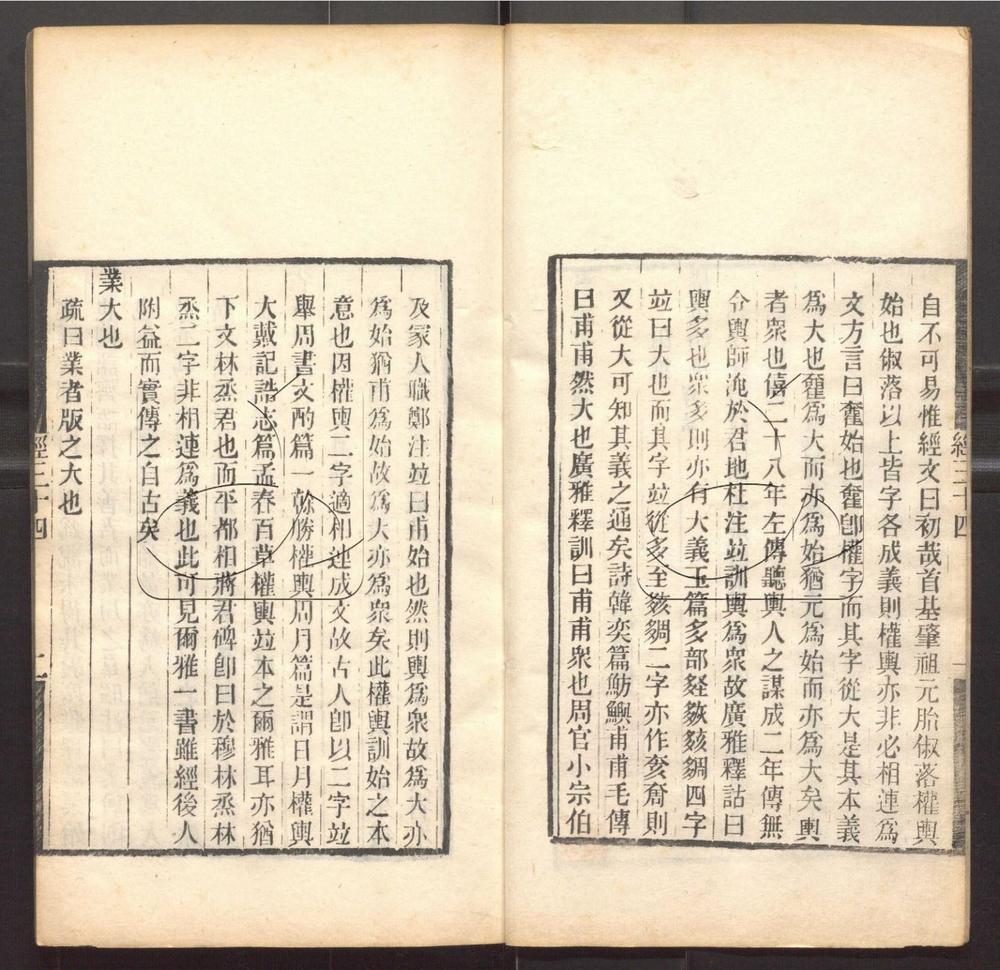 自不可易惟經文曰初哉首基肇祖元胎俶落權輿
始也俶落以上皆字各成義則權輿亦非必相連爲
文方言曰奞始也奞卽權字而其字從大是其本義
爲大也奞爲大而亦爲始猶元爲始而亦爲大矣輿
者衆也僖二十八年左傳聽輿人之謀成二年傳無
令輿師淹於君地杜注竝訓輿爲衆故廣雅釋詁曰
輿多也衆多則亦有大義玉篇多部䤗㚌㚊綢四字
竝曰大也而其字竝從多至㚊綢二字亦作奒奝則
又從大可知其義之通矣詩韓奕篇魴鱮甫甫毛傳
曰甫甫然大也廣雅釋訓曰甫甫衆也周官小宗伯
經三十四
及冢人職鄭注竝曰甫始也然則輿爲衆故爲大亦
爲始猶甫爲始故爲大亦爲衆矣此權輿訓始之本
意也因權輿二字適相連成文故古人卽以二字竝
舉周書文酌篇一榦勝權輿周月篇是謂日月權輿
大戴記誥志篇孟春百草權輿竝本之爾雅耳亦猶
下文林烝君也而平都相蔣君碑卽曰於穆林烝林
烝二字非相連爲義也此可見爾雅一書雖經後人
附益而實傳之自古矣
業大也
疏曰業者版之大也
經三十四